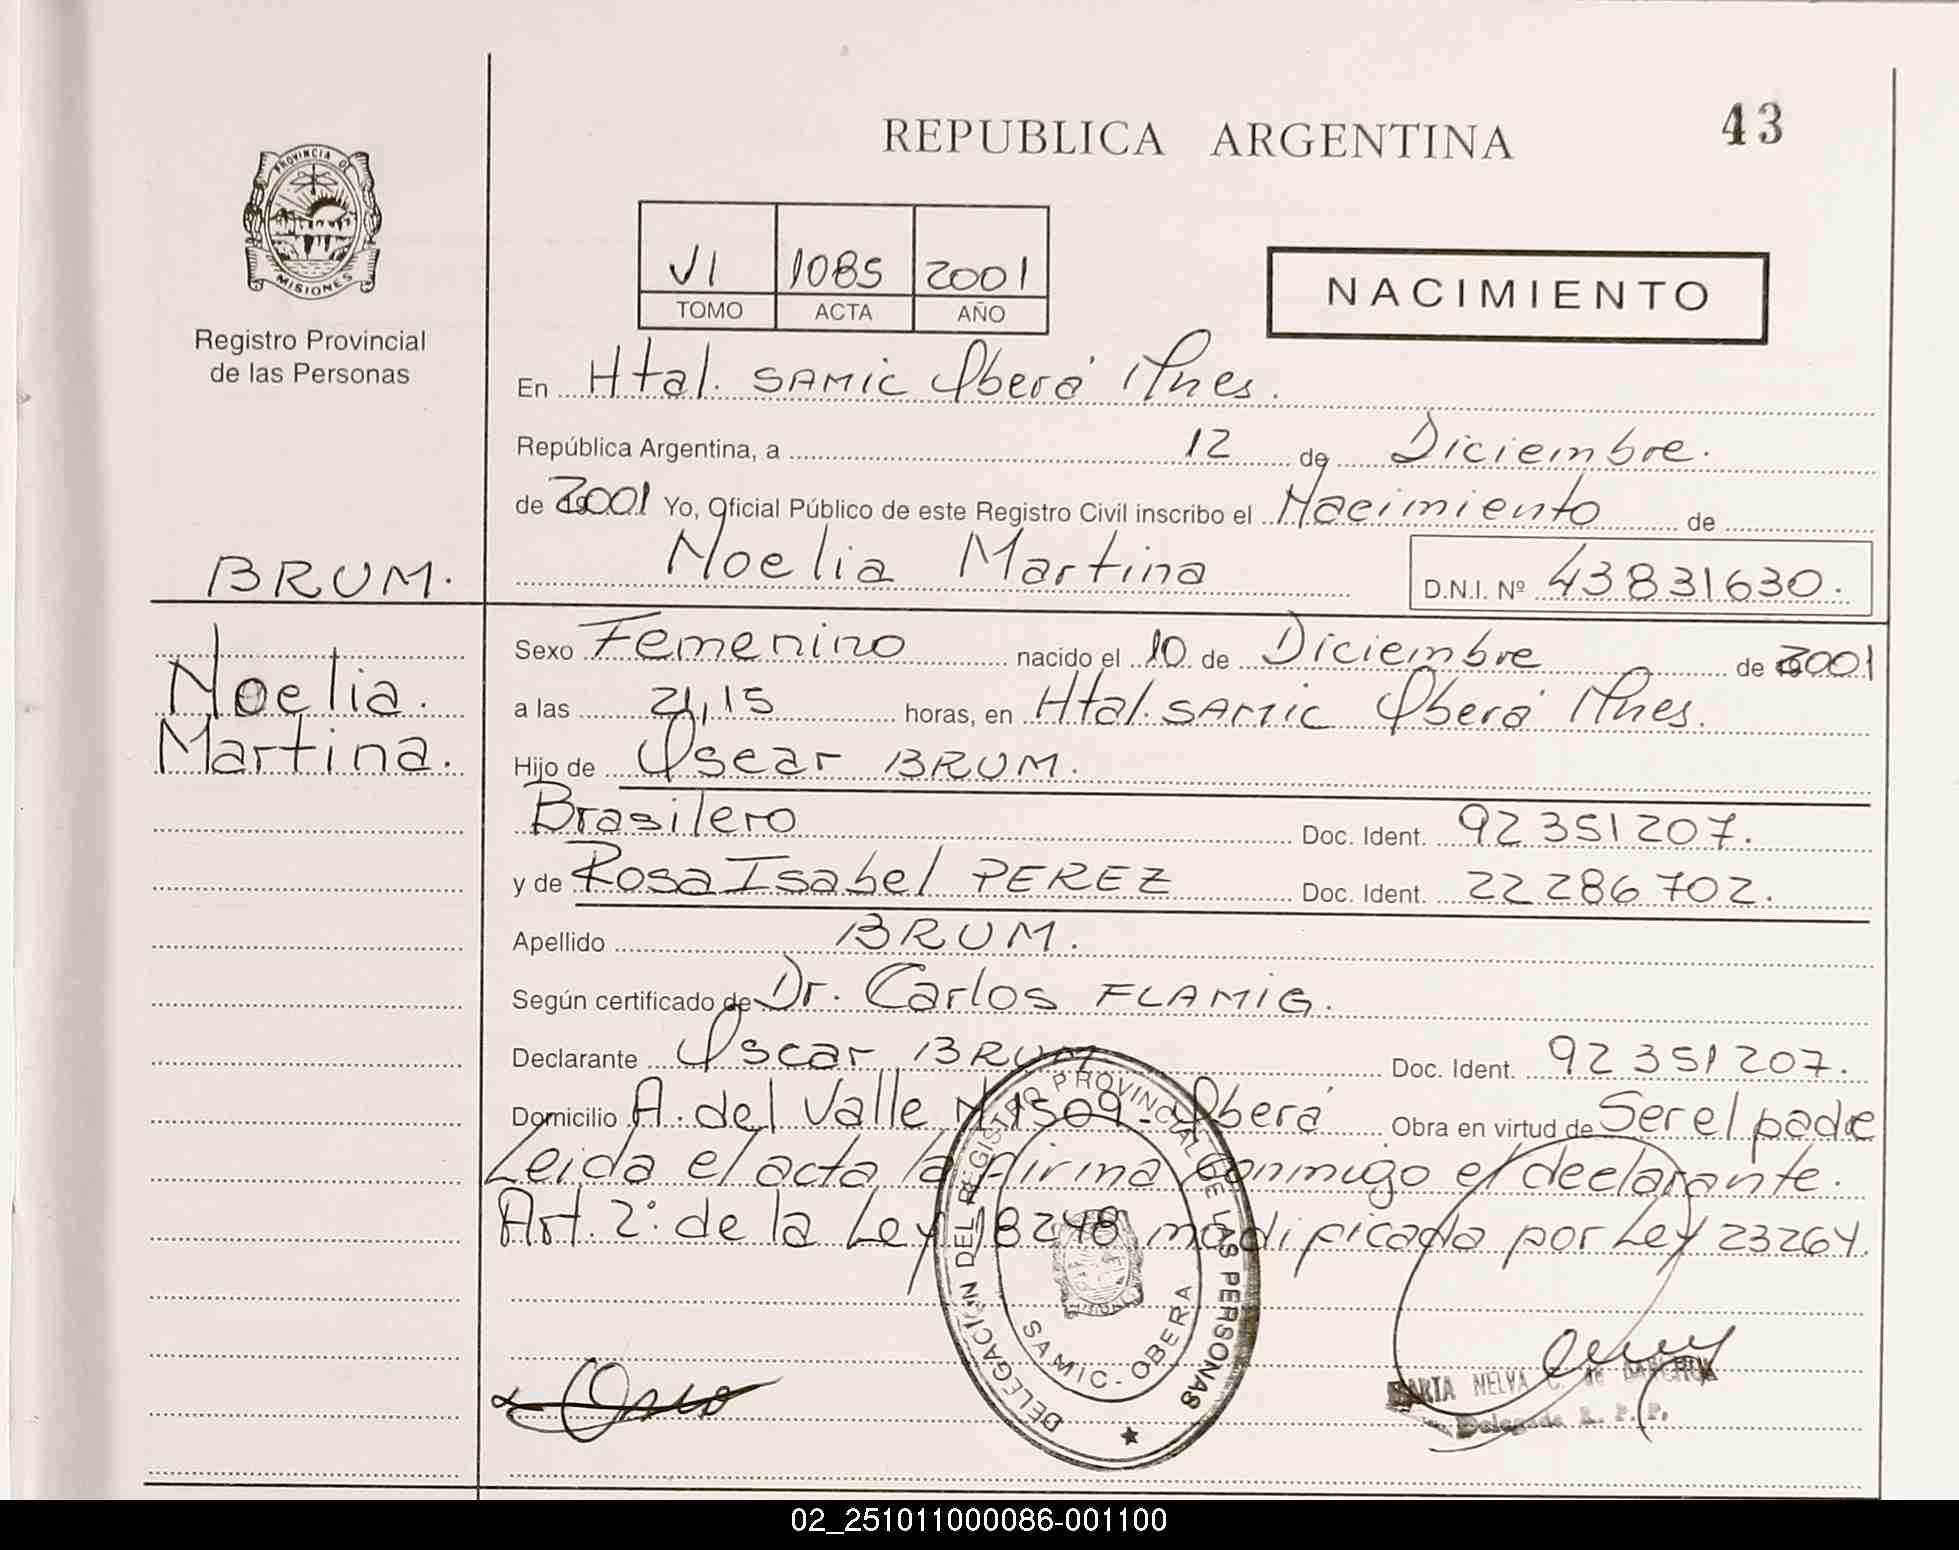 REPUBLICA ARGENTINA
43
PROVINCIA DE
MISIONES
Registro Provincial
de las Personas
VI 1085 2001
TOMO ACTA AÑO
NACIMIENTO
En Htal. SAMIC Oberá Mnes.
República Argentina, a 12 de Diciembre.
de 2001 Yo, Oficial Público de este Registro Civil inscribo el Nacimiento de
Noelia Martina D.N.I. Nº 43831630.
BRUM.
Noelia.
Martina.
Sexo Femenino nacido el 10 de Diciembre de 2001
a las 21,15 horas, en Htal. SAMIC Oberá Mnes.
Hijo de Oscar BRUM.
Brasilero Doc. Ident. 92 351 207.
y de Rosa Isabel PEREZ Doc. Ident. 22 286 702.
Apellido BRUM.
Según certificado de Dr. Carlos FLAMIG.
Declarante Oscar BRUM Doc. Ident. 92 351 207.
Domicilio A. del Valle Nº 1509. Oberá Obra en virtud de Ser el padre
Leida el acta la firma conmigo el declarante.
Art. 2º de la Ley 18248 modificada por Ley 23264.
DELEGACIÓN DEL REGISTRO PROVINCIAL DE LAS PERSONAS
SAMIC - OBERA
MARTA NELVA C. de
Delegada R. P. P.
02_251011000086-001100